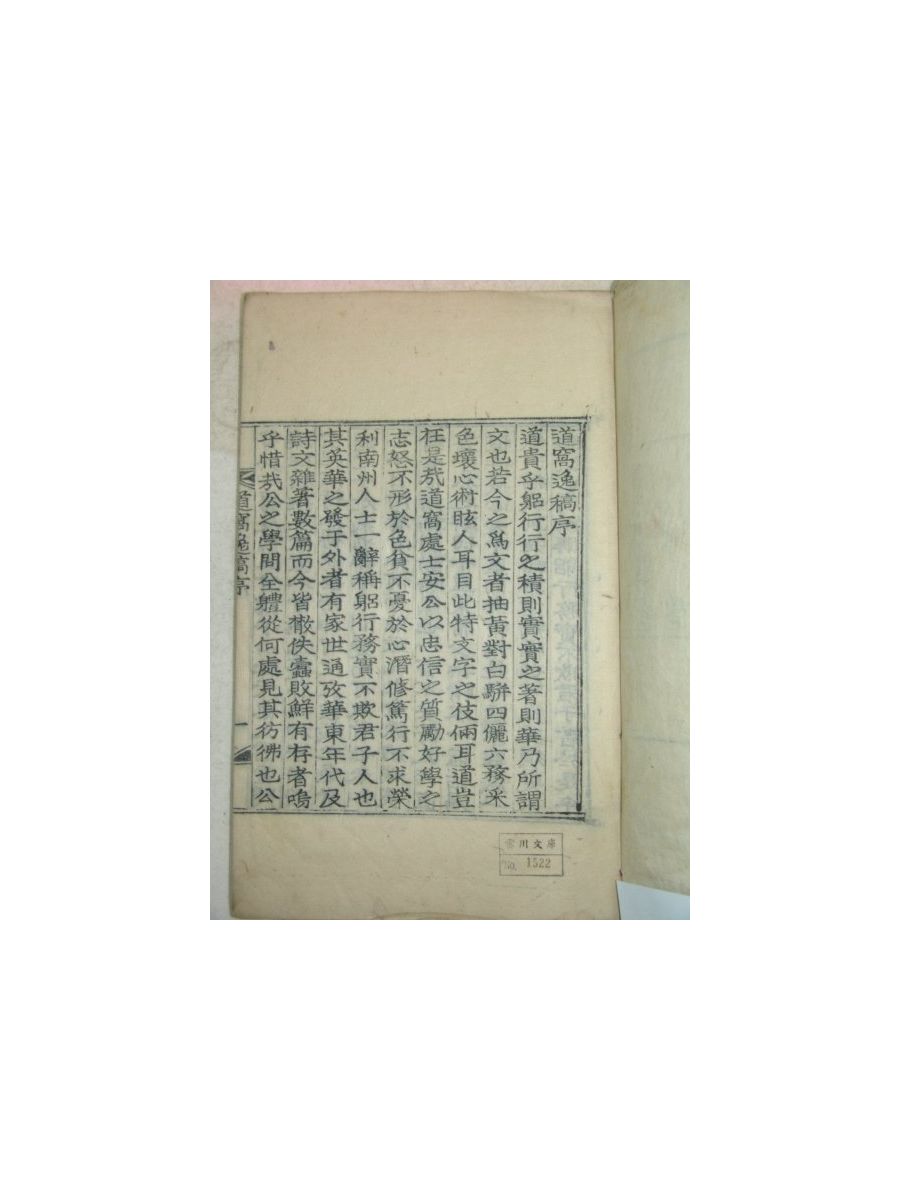 道窩逸稿序
道貴乎躬行行之積則實實之著則華乃所謂
文也若今之爲文者抽黃對白騈四儷六務采
色壞心術眩人耳目此特文字之伎倆耳道豈
在是㦲道窩處士安公以忠信之質勵好學之
志怒不形於色貧不憂於心潛修篤行不求榮
利南州人士一辭稱躬行務實不欺君子人也
其英華之發于外者有家世通攷華東年代及
詩文雜著數篇而今皆散佚蠹敗鮮有存者嗚
乎惜㦲公之學問全軆從何處見其彷彿也公
道窩逸稿序
一
川文庫
No. 1522